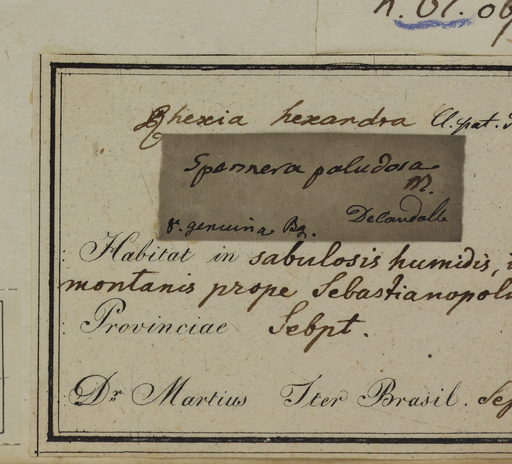 Rhexia hexandra
Spennera paludosa
M.
Decandolle
γ. genuina Bg.
Habitat in sabulosis humidis,
montanis prope Sebastianopol
Provinciae Sebpt.
Dr Martius Iter Brasil. Sep